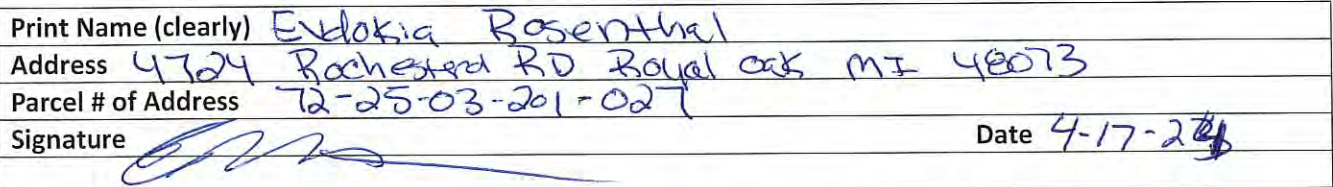 Print Name (clearly) Evdokia Rosenthal
Address 4724 Rochesterd RD Royal oak MI 48073
Parcel # of Address 72-25-03-201-027
Signature Date 4-17-24